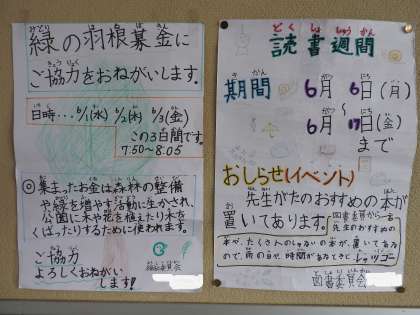 緑の羽根募金に
ご協力をおねがいします。
日時…6/1(水) 6/2(木) 6/3(金)
この3日間です。
7:50～8:05
◎集まったお金は森林の整備
や緑を増やす活動に生かされ、
公園に木や花を植えたり木を
くばったりするために使われます。
ご協力
よろしくおねがい
します!
読書週間
期間 6月6日(月)
～
6月17日(金)
まで
おしらせ(イベント)
先生がたのおすすめの本が
置いてあります。
図書委員から一言
先生のおすすめの
本が、たくさんのしゅるいの本が、置いてある
ので、雨の日や、時間があるときに レッツゴー
図書委員会